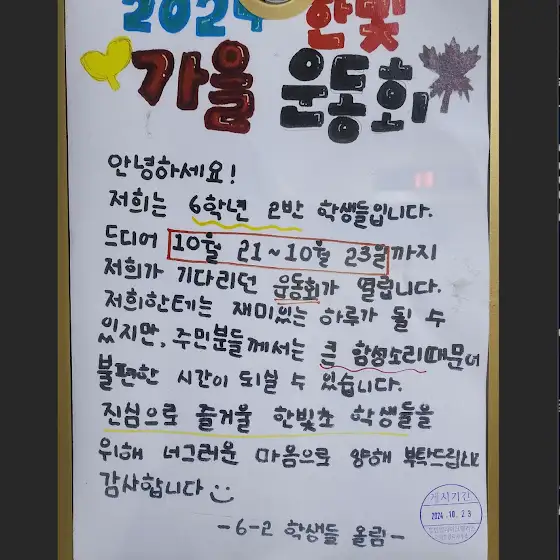 2024 한빛
가을 운동회
안녕하세요!
저희는 6학년 2반 학생들입니다.
드디어 10월 21~10월 23일까지
저희가 기다리던 운동회가 열립니다.
저희한테는 재미있는 하루가 될 수
있지만, 주민분들께서는 큰 함성소리때문에
불편한 시간이 되실 수 있습니다.
진심으로 즐거울 한빛초 학생들을
위해 너그러운 마음으로 양해 부탁드립니다
감사합니다
-6-2 학생들 올림-
게시기간
2024. 10. 23